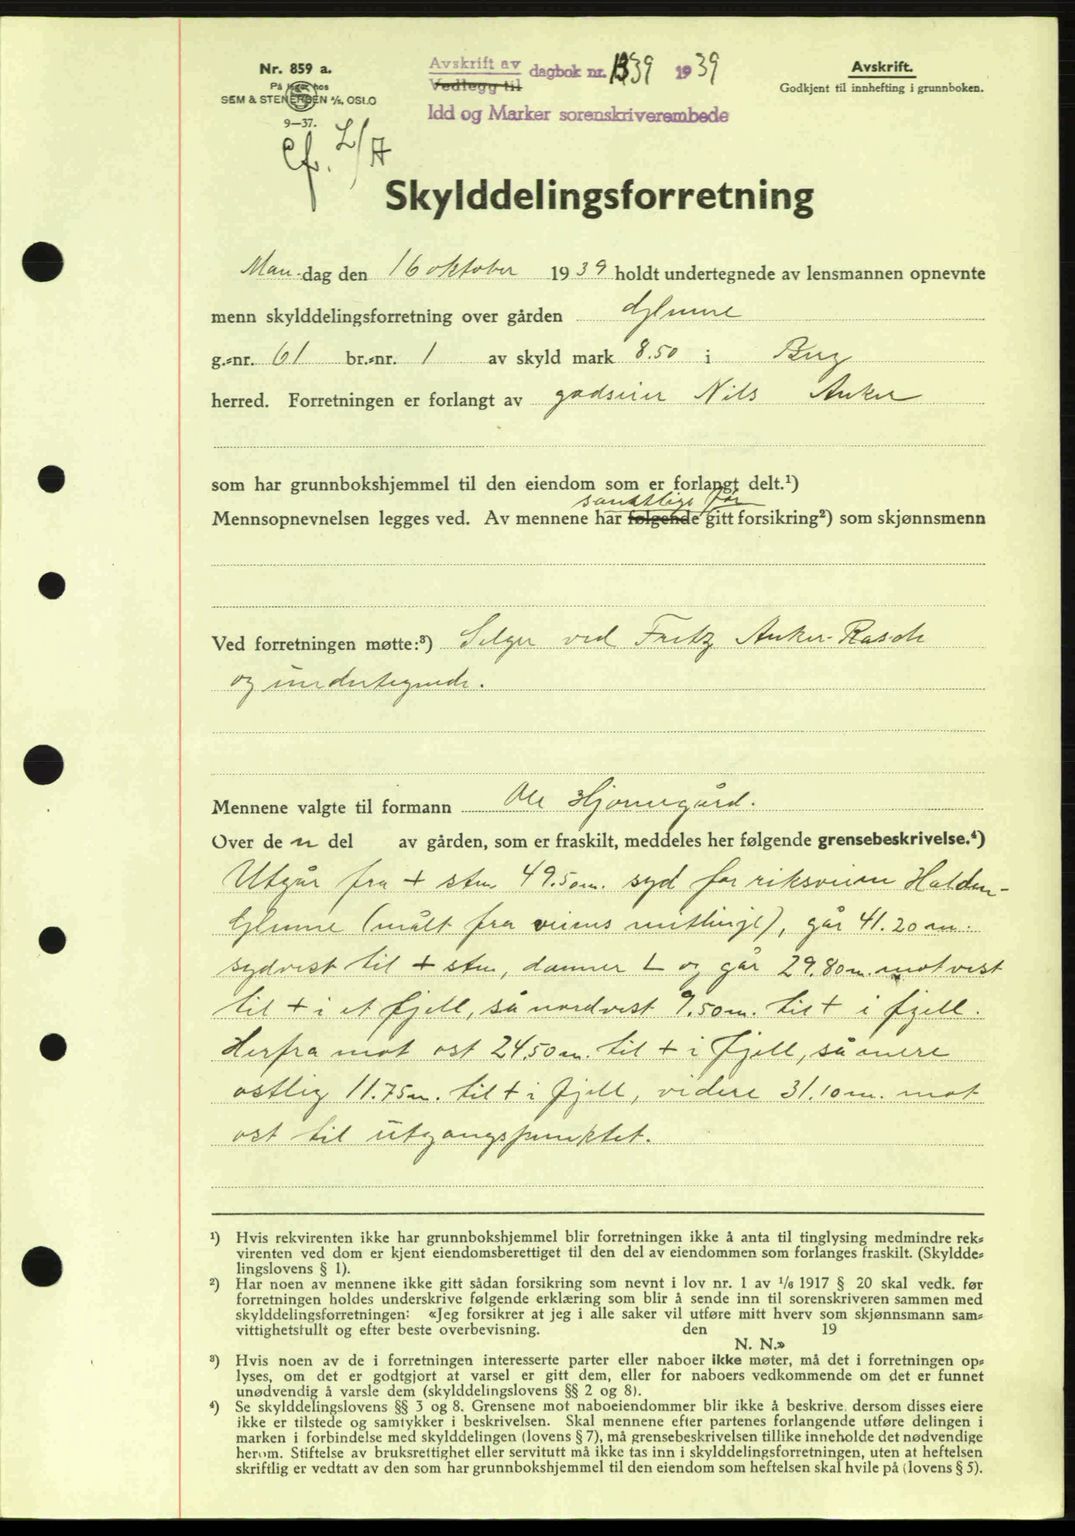 Nr. 859 a.
På lager hos
SEM & STENERSEN A/S, OSLO
9—37.
Avskrift av
Vedlegg til
dagbok nr. 1339 1939
Idd og Marker sorenskriverembede
Avskrift.
Godkjent til innhefting i grunnboken.
Cf. L/A
Skylddelingsforretning
Man-dag den 16 oktober 1939 holdt undertegnede av lensmannen opnevnte
menn skylddelingsforretning over gården Glenne
g.-nr. 61 br.-nr. 1 av skyld mark 8.50 i Berg
herred. Forretningen er forlangt av godseier Nils Anker
som har grunnbokshjemmel til den eiendom som er forlangt delt.¹)
samtlige før
Mennsopnevnelsen legges ved. Av mennene har følgende gitt forsikring²) som skjønnsmenn
Ved forretningen møtte:³) Selger ved Fritz Anker-Rasch
og undertegnede.
Mennene valgte til formann Ole Hjonnegård.
Over den del av gården, som er fraskilt, meddeles her følgende grensebeskrivelse.⁴)
Utgår fra + sten 49.50m. syd for riksveien Halden-
Glenne (målt fra veiens midtlinje), går 41.20 m.
sydvest til + sten, danner L og går 29.80m. mot vest
til + i et fjell, så nordvest 9.50m. til + i fjell.
Herfra mot ost 24.50m. til + i fjell, så mere
ostlig 11.75m. til + i fjell, videre 31.10m. mot
ost til utgangspunktet.
¹) Hvis rekvirenten ikke har grunnbokshjemmel blir forretningen ikke å anta til tinglysing medmindre rek-
virenten ved dom er kjent eiendomsberettiget til den del av eiendommen som forlanges fraskilt. (Skyldde-
lingslovens § 1).
²) Har noen av mennene ikke gitt sådan forsikring som nevnt i lov nr. 1 av 1/6 1917 § 20 skal vedk. før
forretningen holdes underskrive følgende erklæring som blir å sende inn til sorenskriveren sammen med
skylddelingsforretningen: «Jeg forsikrer at jeg i alle saker vil utføre mitt hverv som skjønnsmann sam-
vittighetsfullt og efter beste overbevisning. den 19
N. N.»
³) Hvis noen av de i forretningen interesserte parter eller naboer ikke møter, må det i forretningen op-
lyses, om det er godtgjort at varsel er gitt dem, eller for naboers vedkommende om det er funnet
unødvendig å varsle dem (skylddelingslovens §§ 2 og 8).
⁴) Se skylddelingslovens §§ 3 og 8. Grensene mot naboeiendommer blir ikke å beskrive, dersom disses eiere
ikke er tilstede og samtykker i beskrivelsen. Skal mennene efter partenes forlangende utføre delingen i
marken i forbindelse med skylddelingen (lovens § 7), må grensebeskrivelsen tillike inneholde det nødvendige
herom. Stiftelse av bruksrettighet eller servitutt må ikke tas inn i skylddelingsforretningen, uten at heftelsen
skriftlig er vedtatt av den som har grunnbokshjemmel til den eiendom som heftelsen skal hvile på (lovens § 5).